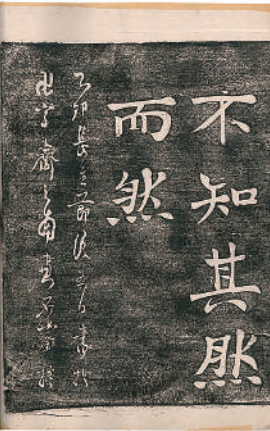 不知其然
而然
乙卯長至節後三日書於
齋之南